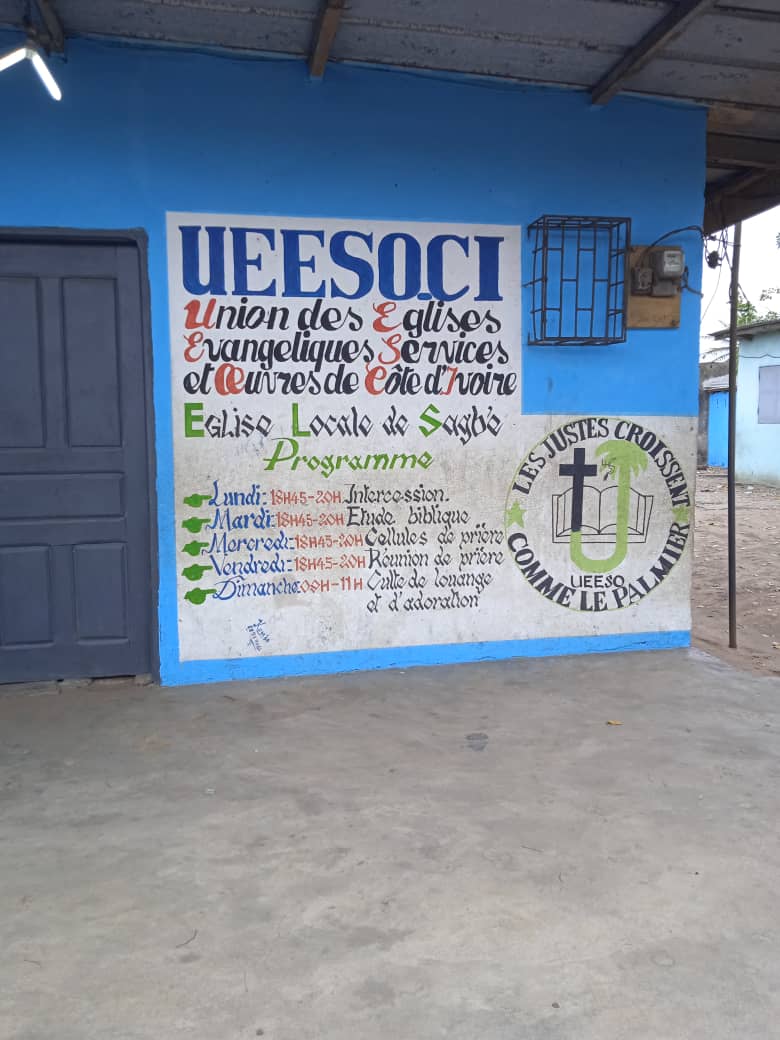 UEESO.CI
Union des Eglises
Evangeliques Services
et Œuvres de Côte d'Ivoire
Eglise Locale de Sagbé
Programme
Lundi: 18H45-20H Intercession.
Mardi: 18H45-20H Etude biblique
Mercredi: 18H45-20H Cellules de prière
Vendredi: 18H45-20H Réunion de prière
Dimanche: 09H-11H Culte de louange
et d'adoration
LES JUSTES CROISSENT
UEESO
COMME LE PALMIER